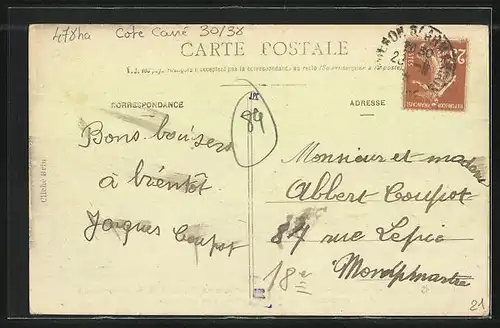 478ha Cote Carré 30/38
CARTE POSTALE
CORRESPONDANCE
ADRESSE
89
Bons baisers
à bientôt
Jacques Coupot
Monsieur et madame
Albert Coupot
87 rue Lepic
18e
Montpmartre
Cliché Brin
21